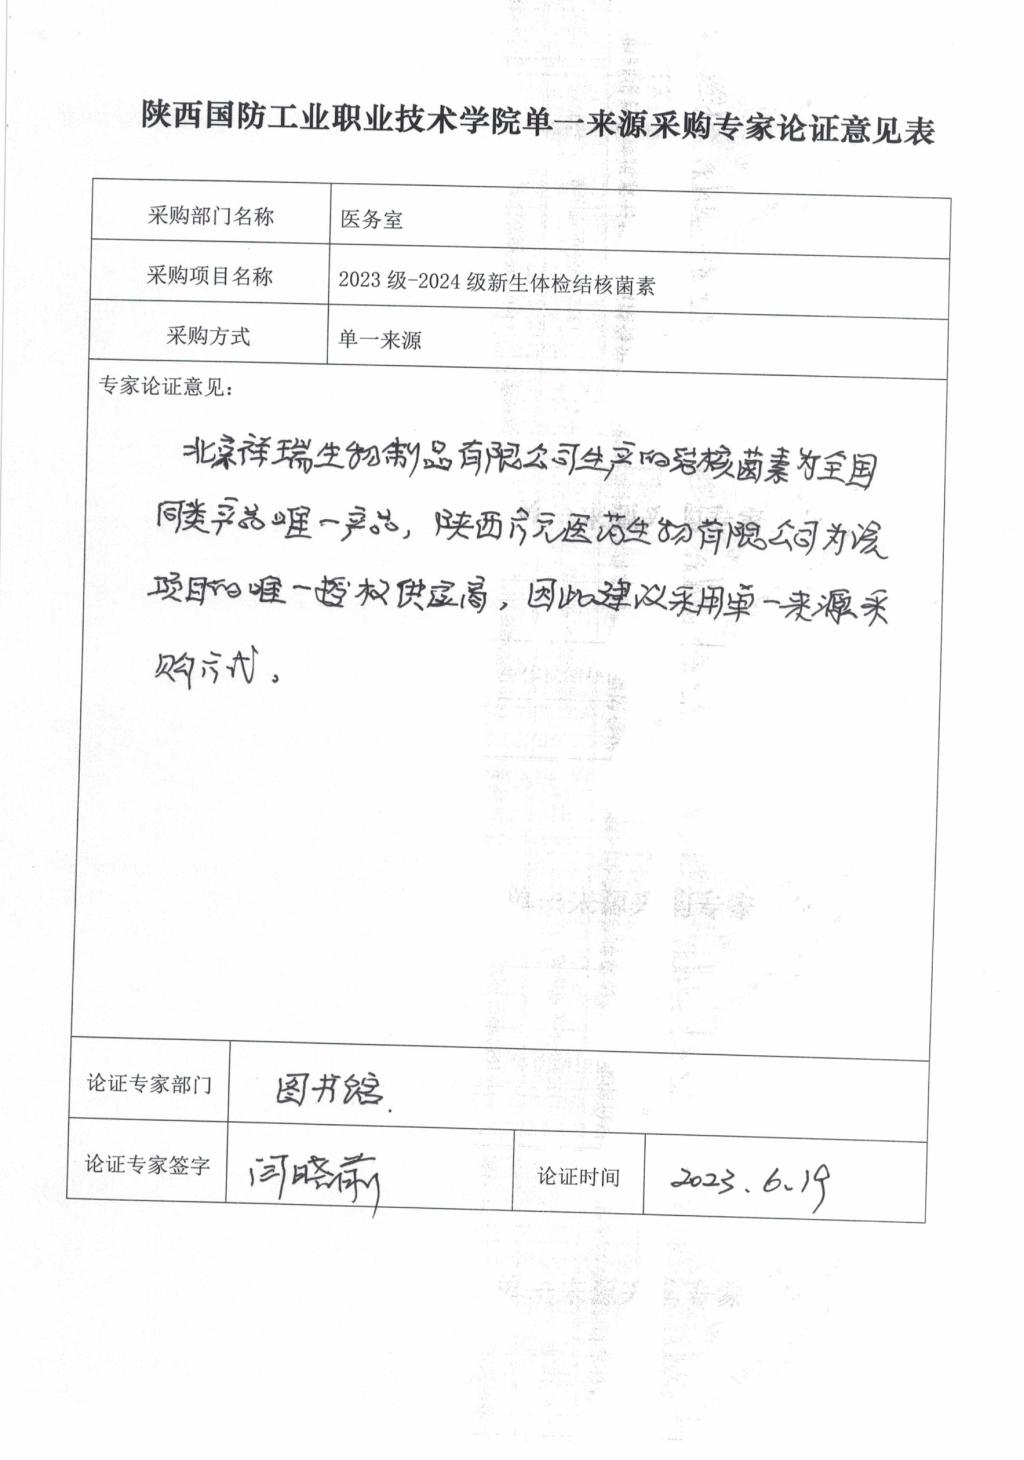 陕西国防工业职业技术学院单一来源采购专家论证意见表
采购部门名称 医务室
采购项目名称 2023 级-2024 级新生体检结核菌素
采购方式 单一来源
专家论证意见:
北京祥瑞生物制品有限公司生产的结核菌素为全国
同类产品唯一产品,陕西广元医药生物有限公司为该
项目的唯一授权供应商,因此建议采用单一来源采
购方式。
论证专家部门 图书馆.
论证专家签字 闫晓莉 论证时间 2023.6.19